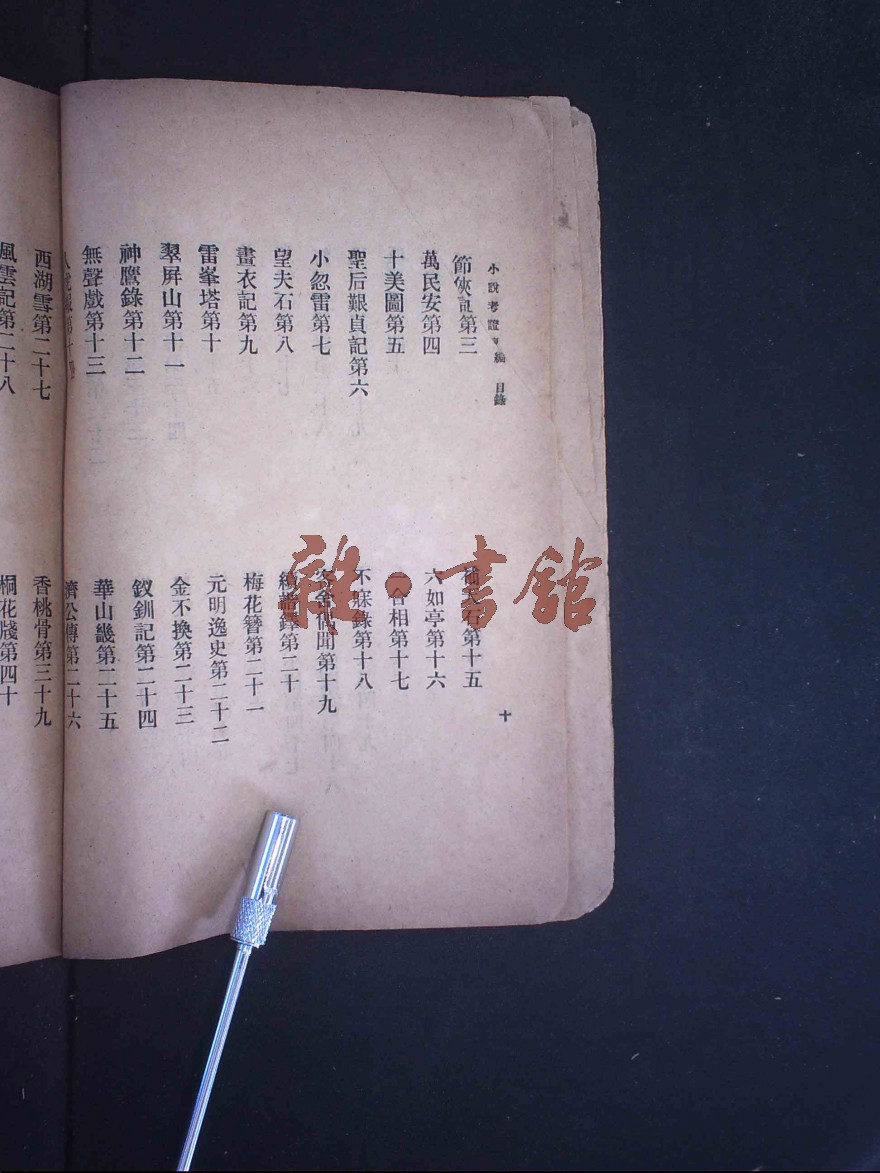 小說考證 編 目錄
節俠記第三
萬民安第四
十美圖第五
聖后艱貞記第六
小忽雷第七
望夫石第八
畫衣記第九
雷峯塔第十
翠屏山第十一
神鷹錄第十二
無聲戲第十三
石第十五
六如亭第十六
合相第十七
不寐錄第十八
聞第十九
諧鐸第二十
梅花簪第二十一
元明逸史第二十二
金不換第二十三
釵釧記第二十四
華山畿第二十五
濟公傳第二十六
十
西湖雪第二十七
風雲記第二十八
香桃骨第三十九
桐花牋第四十
雜·書館